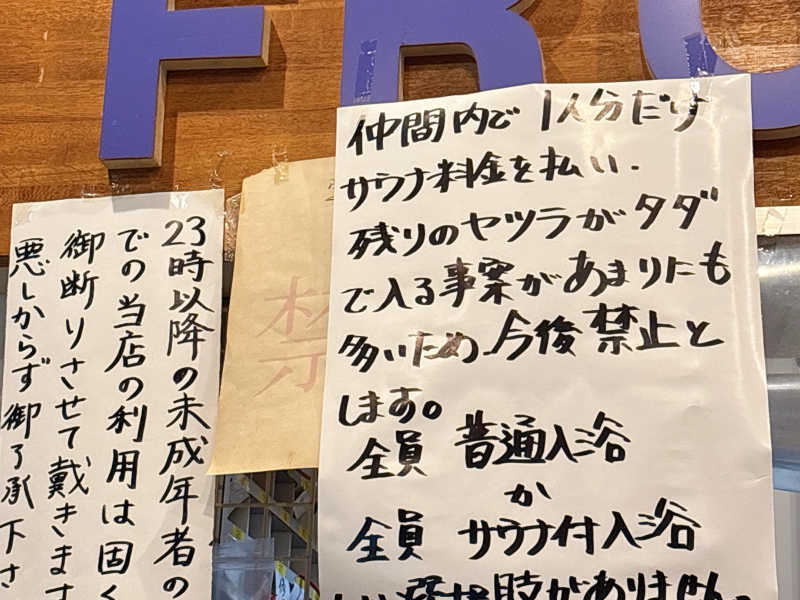 FRO
仲間内で 1人分だけ
サウナ料金を払い、
残りのヤツラがタダ
で入る事案があまりにも
多いため、今後禁止と
します。
全員 普通入浴
か
全員 サウナ付入浴
肢がありません。
禁
23時以降の未成年者の
での当店の利用は固く
御断りさせて戴きます
悪しからず御了承下さ